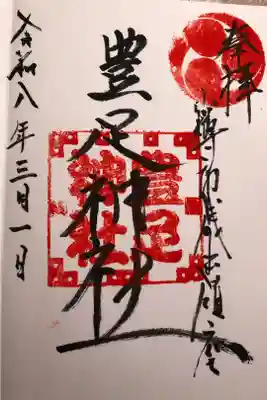 奉拝
豊足神社
豊足神社
令和八年三月一日